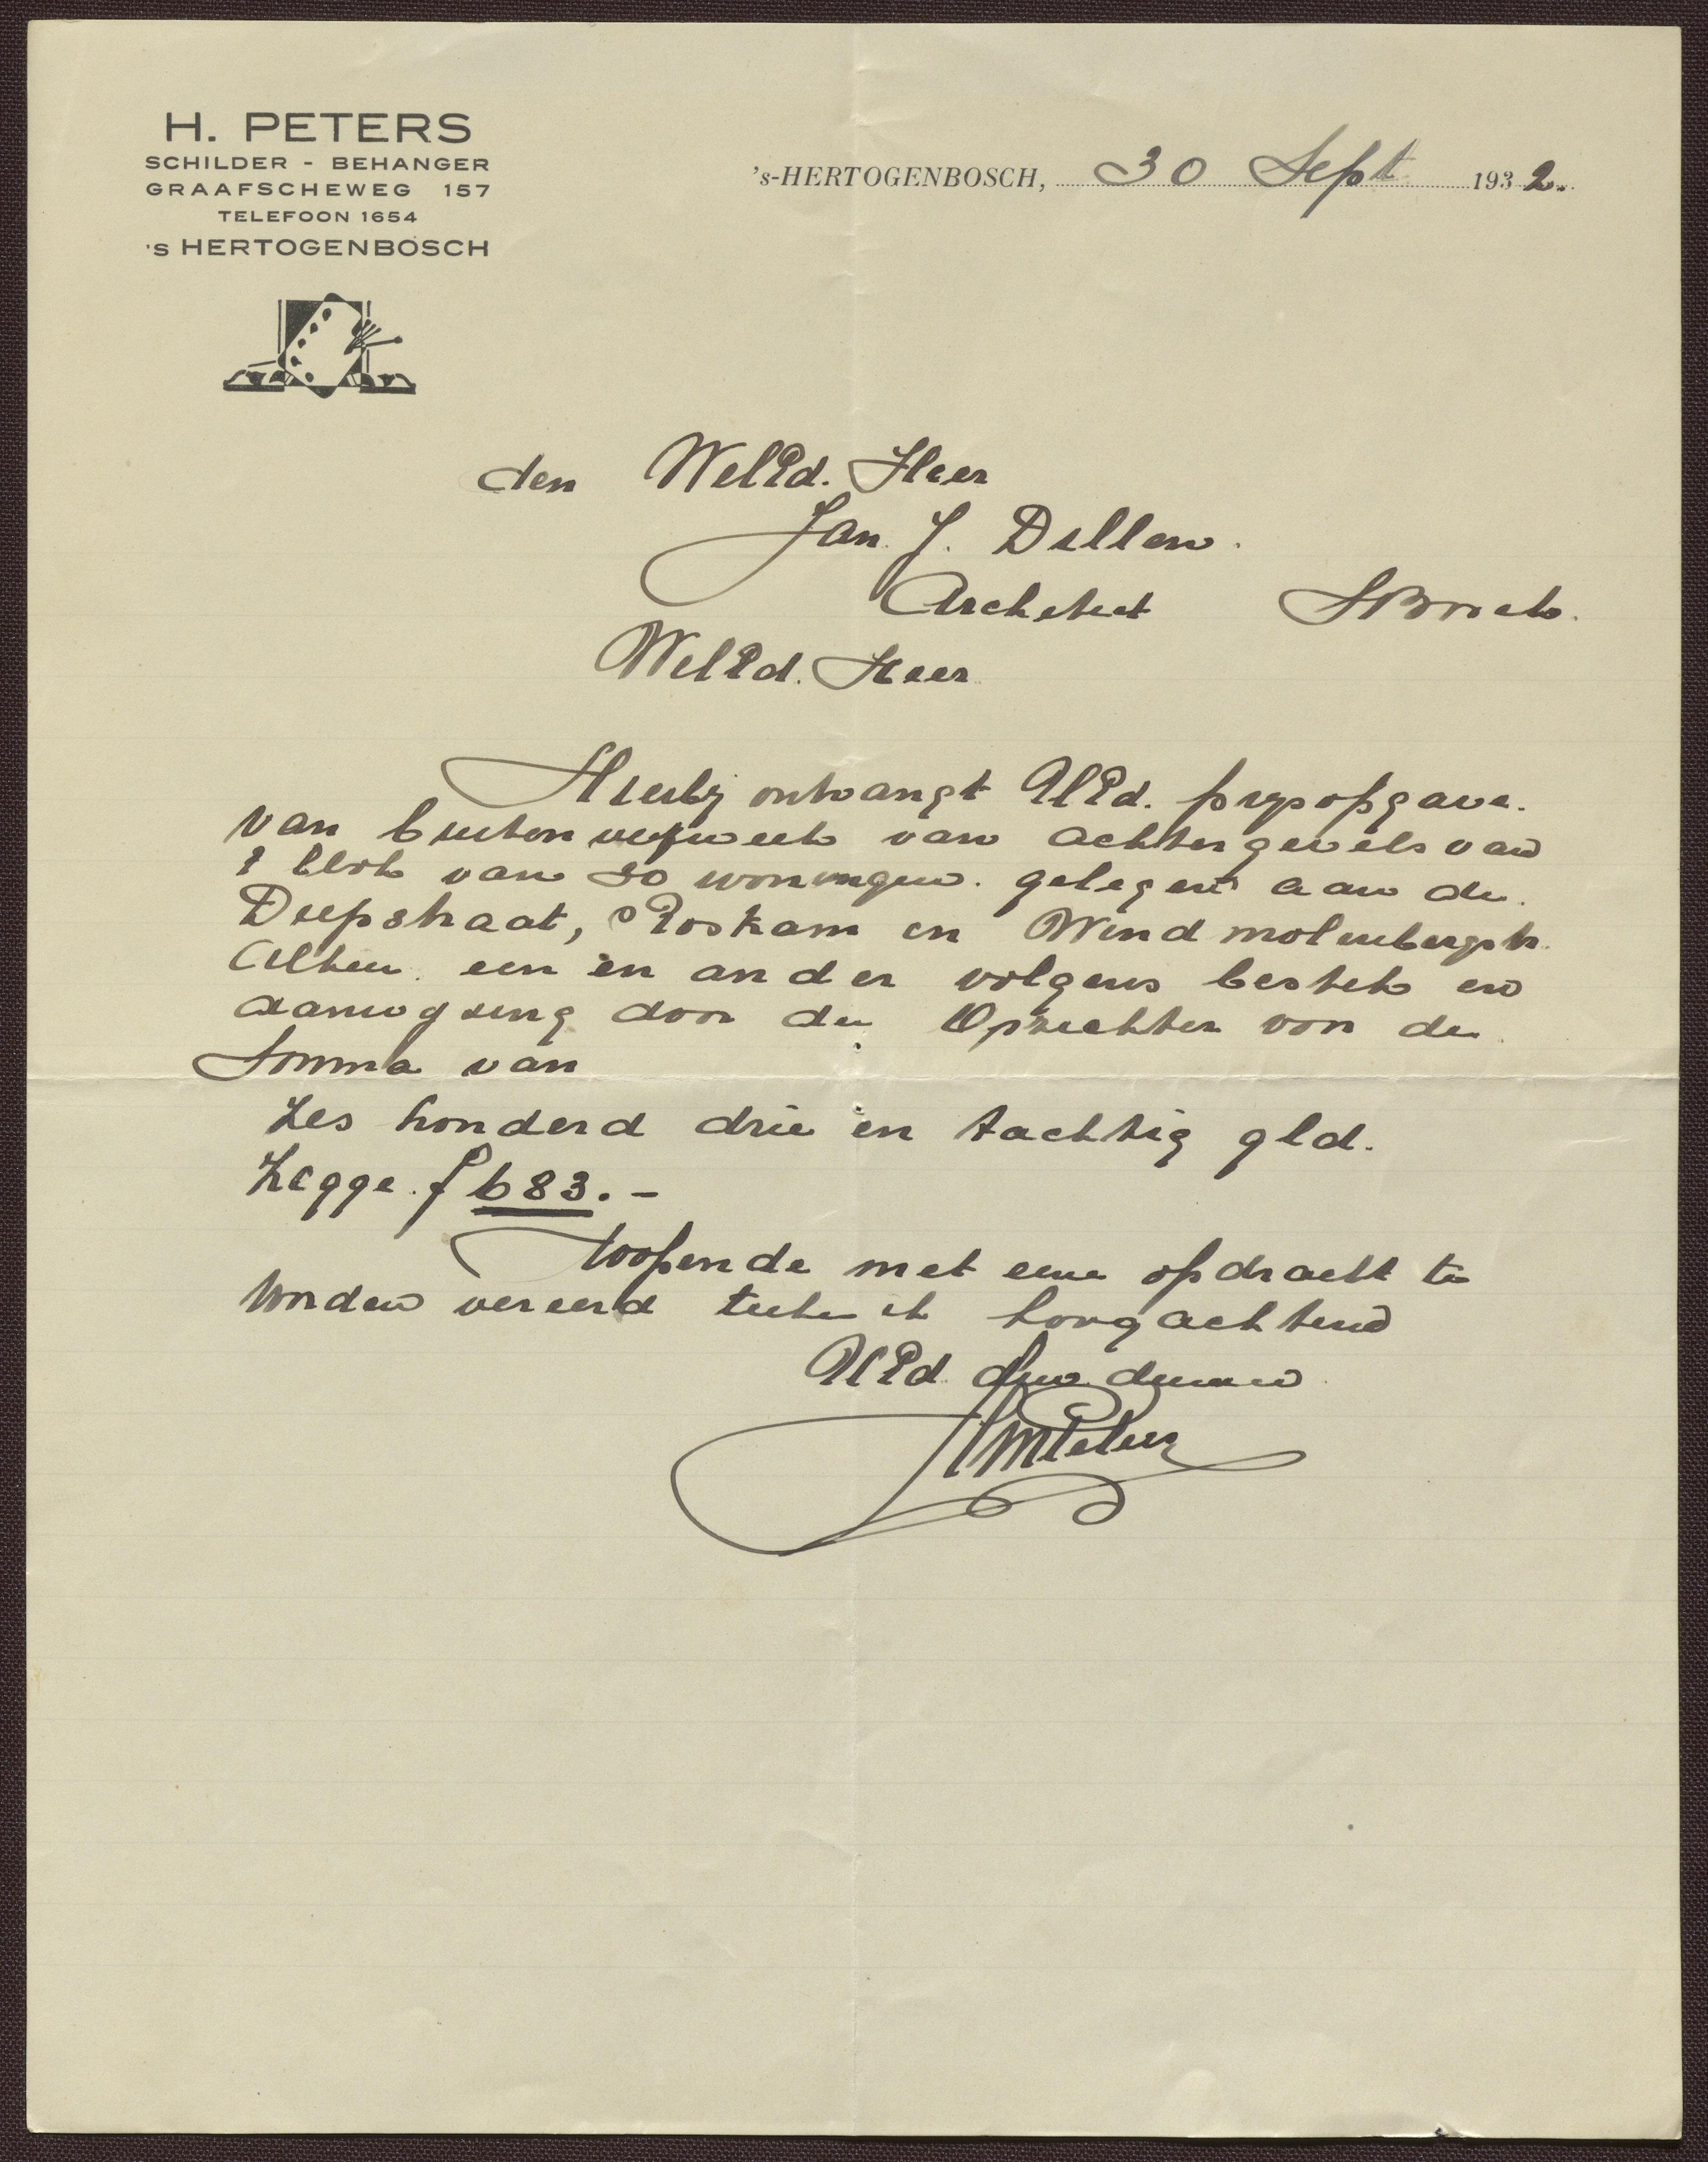 H. PETERS
SCHILDER - BEHANGER
GRAAFSCHEWEG 157
TELEFOON 1654
's HERTOGENBOSCH
's-HERTOGENBOSCH, 30 Sept 1932.
den WelEd. Heer
Jan. J. Dellen.
Architect
WelEd. Heer
Hierbij ontvangt UEd. prysopgave.
van buitenverfwerk van achtergevels van
1 blok van 30 woningen. gelegen aan de.
Diepstraat, Roskam en Windmolenbergstr.
Alhier. een en ander volgens bestek en
aanwyzing door de Opzichter voor de
Somma van
Zes honderd drie en tachtig gld.
Zegge. f 683.-
Hoopende met eene opdracht te
worden vereerd teeken ik hoogachtend
UEd. dw. dienaar
HMPeters